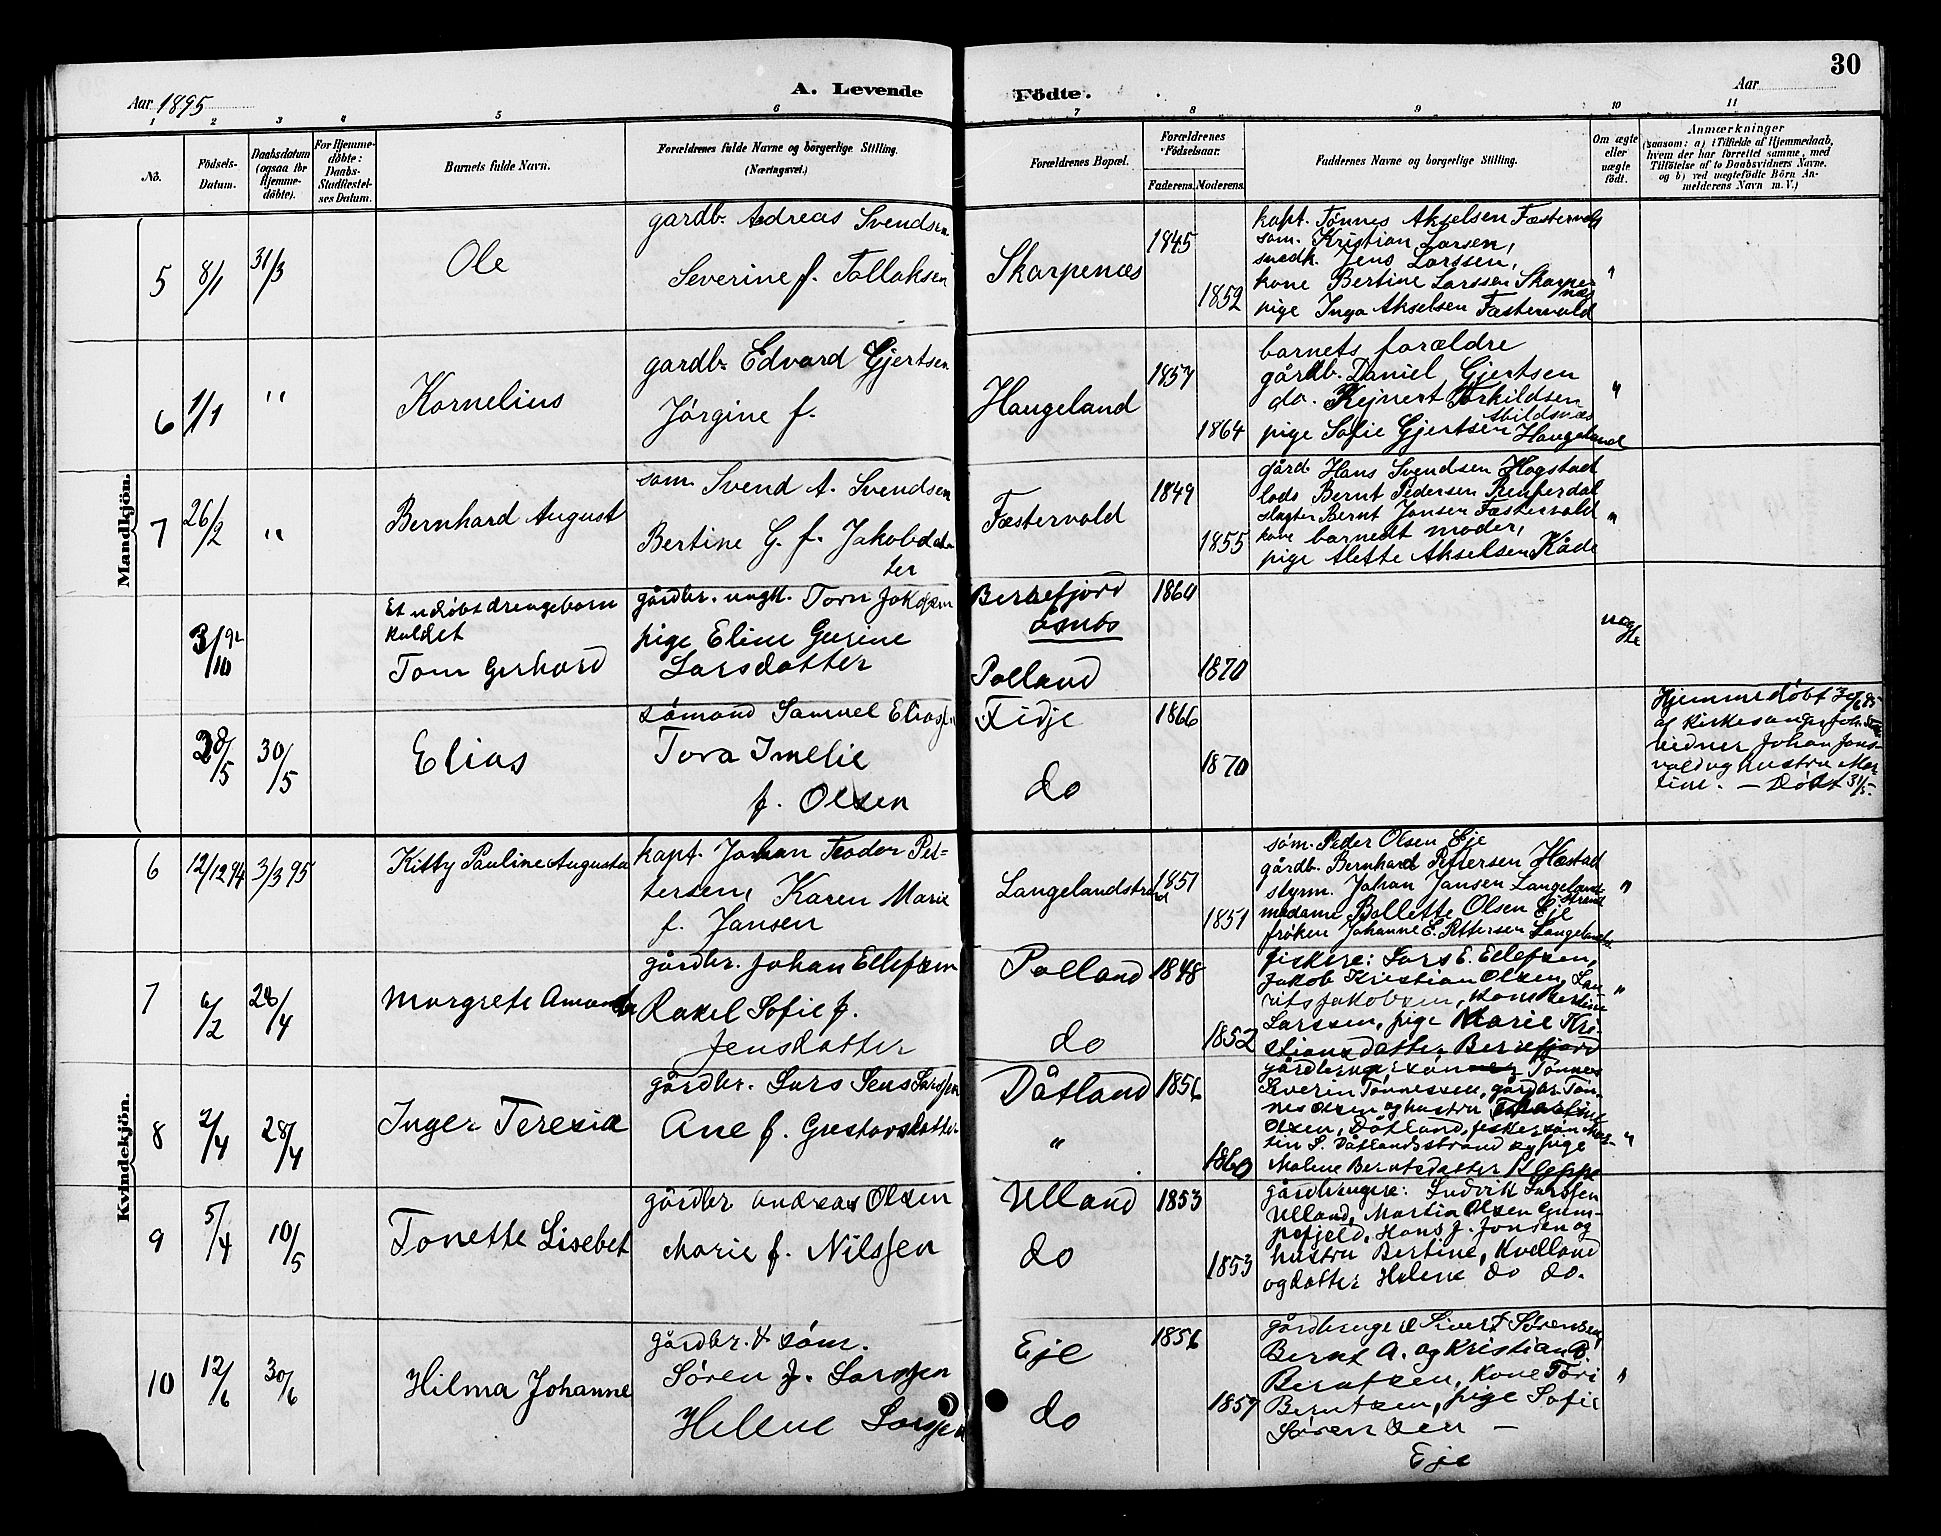 30
Aar 1895
A. Levende Födte.
Aar
1 2 3 4 5 6 7 8 9 10 11
No.
Födsels-Datum.
Daabsdatum (ogsaa for Hjemmedöbte).
For Hjemmedöbte: Daabs-Stadfæstelses Datum.
Barnets fulde Navn.
Forældrenes fulde Navne og borgerlige Stilling. (Næringsvei.)
Forældrenes Bopæl.
Forældrenes Födselsaar.
Faderens. Moderens.
Faddernes Navne og borgerlige Stilling.
Om ægte eller uægte födt.
Anmærkninger
(saasom: a) i Tilfælde af Hjemmedaab, hvem der har forrettet samme, med Tilföielse af to Daabsvidners Navne. og b) ved uægtefödte Börn Anmelderens Navn m. V.)
Mandkjön.
5 8/1 31/3 Ole
gardb. Andreas Svendsen
Severine f. Tollaksen
Skarpenæs 1845 1852
kapt. Tønnes Akselsen Fæstervold
søm. Kristian Larsen,
snedk. Jens Larssen,
kone Bertine Larssen Skarpenæs
pige Inga Akselsen Fæstervold
"
6 1/1 " Kornelius
gardb. Edvard Gjertsen
Jørgine f.
Haugeland 1857 1864
barnets forældre
gårdb. Daniel Gjertsen
do. Rejnert Torkildsen
Abildsnæs
pige Sofie Gjertsen Haugeland
"
7 26/2 " Bernhard August
søm. Svend A. Svendsen
Bertine G. f. Jakobdatter
Fæstervold 1849 1855
gård. Hans Svendsen Hogstad
lods Bernt Pedersen
slagter Bernt Jansen Fæstervold
kone barnedt moder,
pige Alette Akselsen Kåde
"
3/10 92
Et udøbt drengebarn
kaldet
Tom Gerhard
gårdbr. ungk. Torn Jakobsen
pige Eline Gurine
Larsdatter
Berrefjord
Polland
1864 1870
uægte
28/5 30/5 Elias
sømand Samuel Eliassen
Tora Imelie
f. Olsen
Tidje
do
1866 1870
Hjemmedøbt
af kirkesanger
vidner Johan Jans-
vold og hustru Mar-
tine. — Døbt 31/5.
Kvindekjön.
6 12/12 94 3/3 95 Kitty Pauline Augusta
kapt. Johan Teodor Pet-
tersen, Karen Marie
f. Jansen
Langelandstrand 1851 1851
søm. Peder Olsen Eje
gårdb. Bernhard Pettersen Hæstad
styrm. Johan Jansen Langeland-
strand
madame Bollette Olsen Eje
frøken Johanne E. Pettersen Langelandst
"
7 6/2 28/4 Margrete Amanda
gårdbr. Johan Ellefsen
Rakel Sofie f.
Jensdatter
Polland
do
1848 1852
fiskere: Lars E. Ellefsen,
Jakob Kristian Olsen, Lau-
rits Jakobsen, kone Bertine
Larssen, pige Marie Kri-
stiansdatter Berrefjord
"
8 2/4 28/4 Inger Teresia
gårdbr. Lars Jens Larssen
Ane f. Gustavsdatter
Dåtland
"
1856 1860
gårdbruger, søn Tønnes
Severin Tønnessen, gårdbr. Tøn-
nes Olsen og hustru
Olsen, Dåtland, fisker søn Mar-
tin S. Dåtlandsstrand og pige
Malene Berntsdatter Kleppe
"
9 5/4 10/5 Tonette Lisebet
gårdbr Andreas Olsen
Marie f. Nilssen
Ulland
do
1853 1853
gårdbrugere: Ludvik Larssen
Ulland, Martin Olsen Gum-
pefjeld, Hans J. Jonsen og
hustru Bertine, Kvelland
og datter Helene do do.
10 12/6 30/6 Hilma Johanne
gårdbr. & søm.
Søren J. Larssen
Helene Larssen
Eje
do
1856 1857
gårdbrugere Sivert Sørensen,
Bernt A. og Kristian B.
Berntsen, kone Tori
Berntsen, pige Sofie
Sørensen —
Eje
"